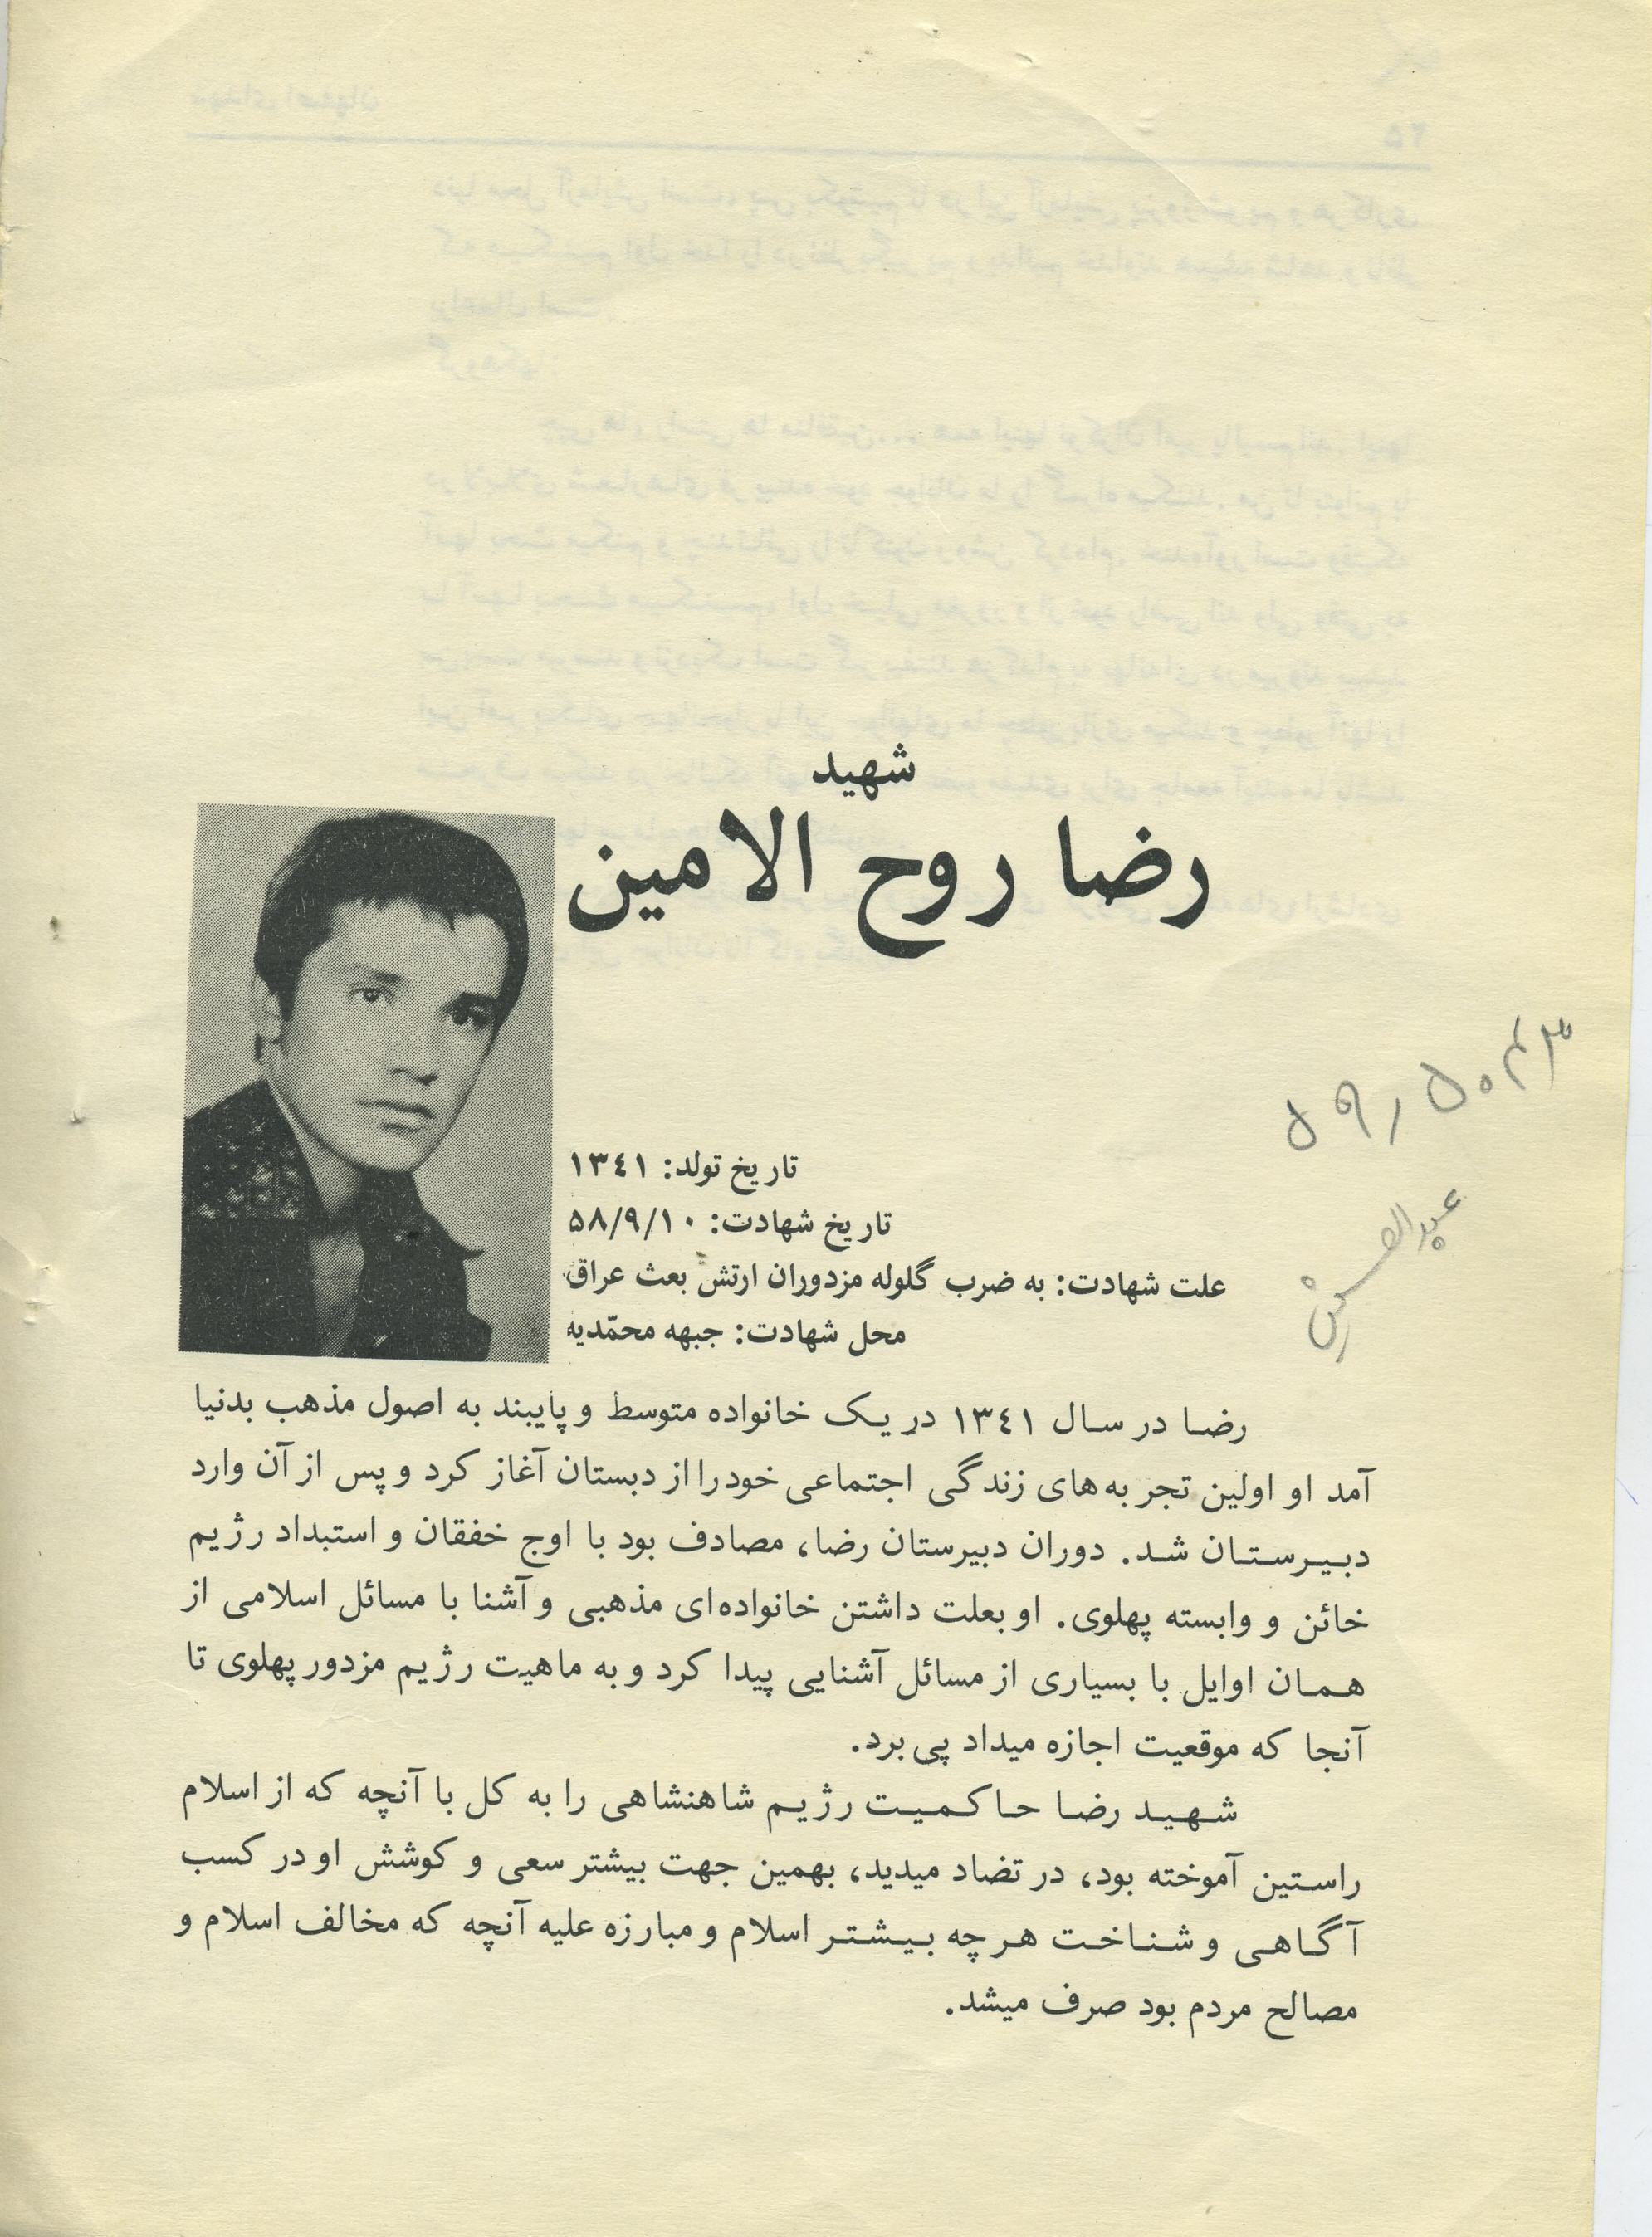 شهید
رضا روح الامین
تاریخ تولد: ۱۳٤۱
تاریخ شهادت: ۵۸/۹/۱۰
علت شهادت: به ضرب گلوله مزدوران ارتش بعث عراق
محل شهادت: جبهه محمّدیه
رضا در سال ۱۳٤۱ در یک خانواده متوسط و پایبند به اصول مذهب بدنیا
آمد او اولین تجربه‌های زندگی اجتماعی خود را از دبستان آغاز کرد و پس از آن وارد
دبیرستان شد. دوران دبیرستان رضا، مصادف بود با اوج خفقان و استبداد رژیم
خائن و وابسته پهلوی. او بعلت داشتن خانواده‌ای مذهبی و آشنا با مسائل اسلامی از
همان اوایل با بسیاری از مسائل آشنایی پیدا کرد و به ماهیت رژیم مزدور پهلوی تا
آنجا که موقعیت اجازه میداد پی برد.
شهید رضا حاکمیت رژیم شاهنشاهی را به کل با آنچه که از اسلام
راستین آموخته بود، در تضاد میدید، بهمین جهت بیشتر سعی و کوشش او در کسب
آگاهی و شناخت هر چه بیشتر اسلام و مبارزه علیه آنچه که مخالف اسلام و
مصالح مردم بود صرف میشد.